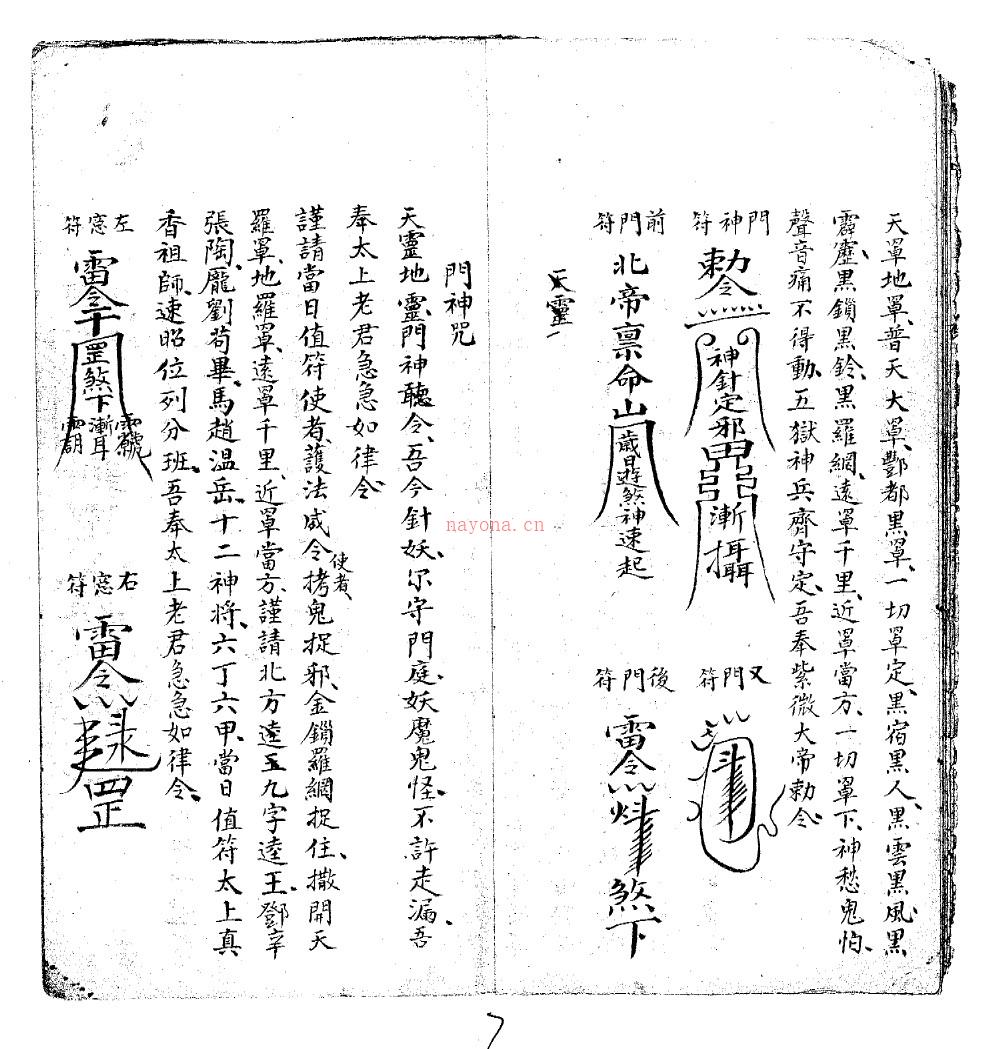 天罩地罩、普天大罩、酆都黑罩、一切罩定、黑宿黑人、黑雲黑風、黑
霹靂、黑鎖黑鈴、黑羅網、遠罩千里、近罩當方、一切罩下、神愁鬼怕、
聲音痛不得動、五獄神兵齊守定、吾奉紫微大帝勅令、
門神符
勅令
神針定邪
漸攝
又門符
前門符
北帝禀命
煞神速起
後門符
雷令
煞下
天靈
門神咒
天靈地靈、門神聽令、吾今針妖、尔守門庭、妖魔鬼怪、不許走漏、吾
奉太上老君急急如律令、
謹請當日值符使者、護法威令使者、拷鬼捉邪、金鎖羅網捉住、撒開天
羅罩、地羅罩、遠罩千里、近罩當方、謹請北方逵五九字逵王、鄧辛
張陶、龐劉苟畢、馬趙溫岳、十二神將、六丁六甲、當日值符太上真
香祖師、速昭位列分班、吾奉太上老君急急如律令、
左窓符
雷令
罡煞下
右窓符
雷令
罡
nayona.cn
7